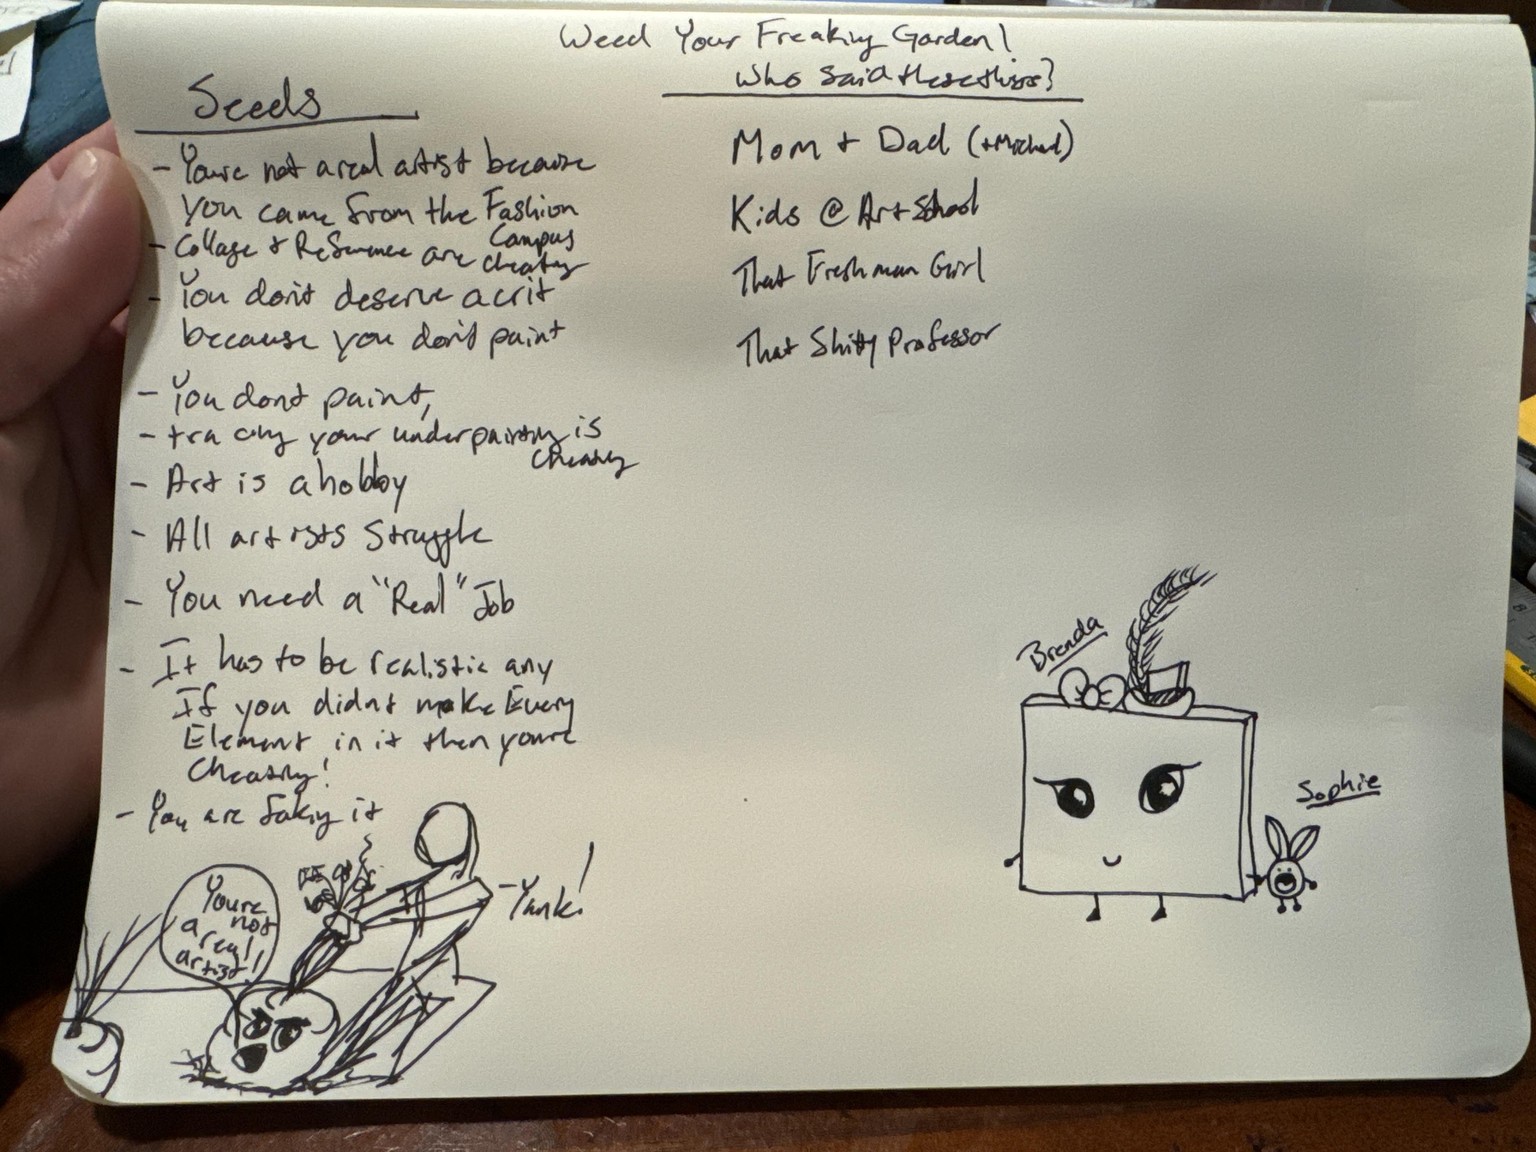 Weed Your Freaking Garden!
Who said these things?
Seeds
- Youre not a real artist because
you came from the Fashion
Campus
- Collage & Reference are cheating
- You don't deserve a crit
because you don't paint
- You dont paint,
- tracing your underpainting is
cheating
- Art is a hobby
- All artists struggle
- You need a "Real" Job
- It has to be realistic any
If you didnt make Every
Element in it then youre
Cheating!
- You are faking it
Youre
not
a real
artist!
- Yank!
Mom + Dad (+Michael)
Kids @ Art School
That Freshman Girl
That Shitty Professor
Brenda
Sophie